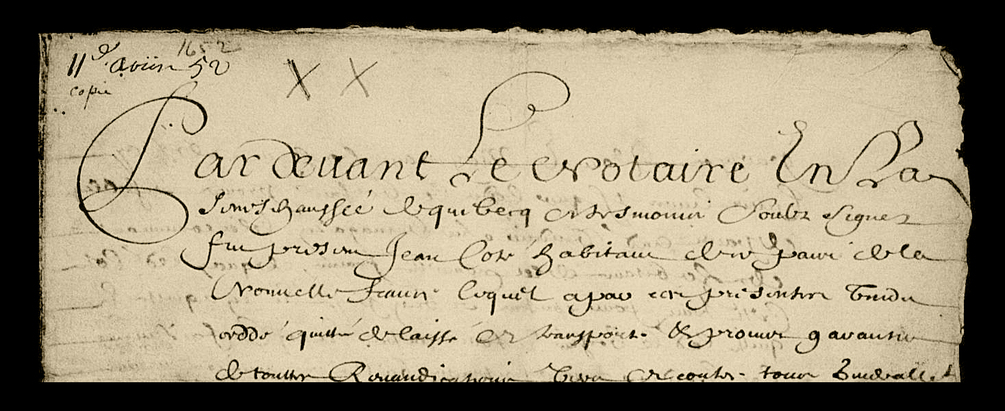 1652
11e Avril 52
copie
X X
Pardevant Le Notaire En La
Seneschaussée de quebecq et tesmoins Soubz Signez
fut present Jean Cote habitant de ce paÿs de la
Nouvelle france lequel a par ces presentes Vendu
ceddé quitté delaissé et transporté & promis garantir
de touttes Revandications et contre tous